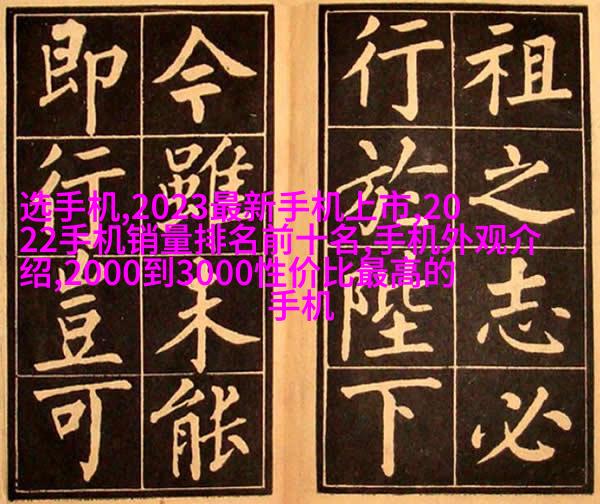 祖之志必
行於陛下
今雖未能
即行豈可
选手机,2023最新手机上市,20
22手机销量排名前十名,手机外观介
绍,2000到3000性价比最高的
手机